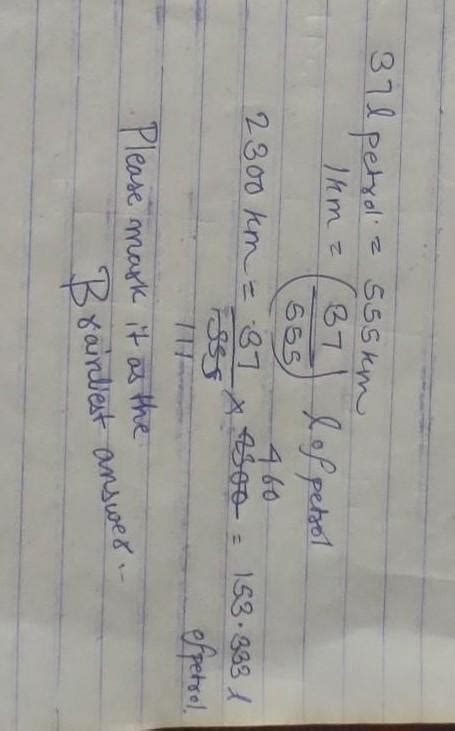 37 l petrol = 555 km
1 km = (37/555) l of petrol
460
2300 km = 37/555 × 2300 = 153.333 l
111
of petrol.
Please mark it as the
Brainliest answer.-